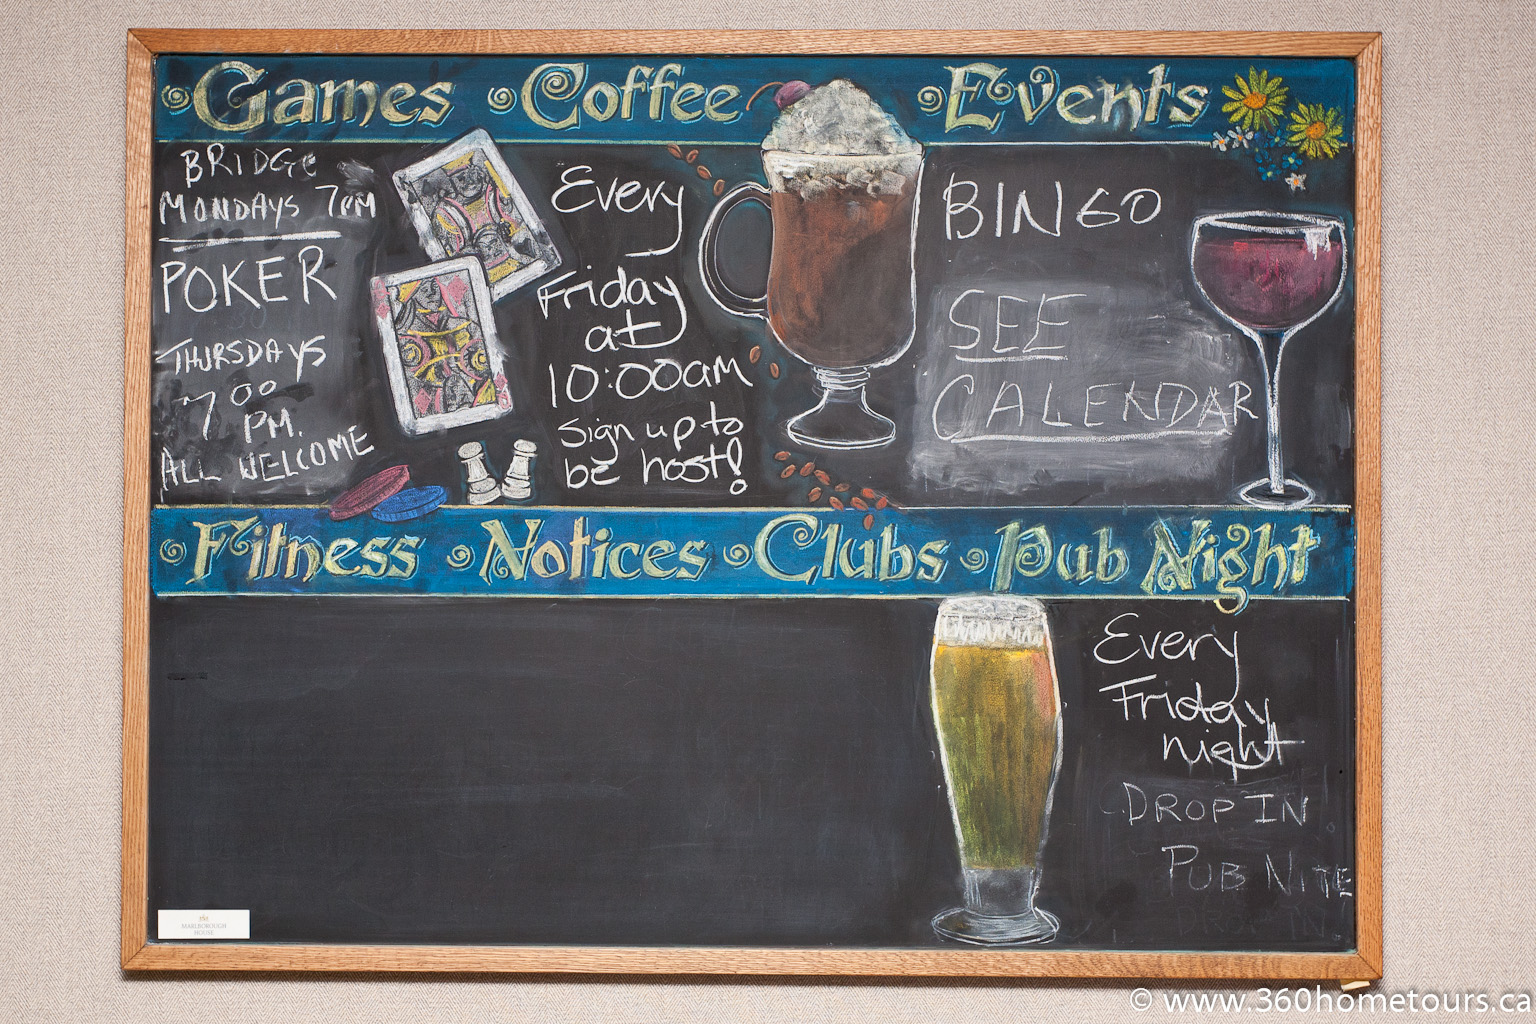 Games Coffee Events
BRIDGE
MONDAYS 7PM
POKER
THURSDAYS
7 00
PM.
ALL WELCOME
Every
Friday
at
10:00am
Sign up to
be host!
BINGO
SEE
CALENDAR
Fitness Notices Clubs Pub Night
Every
Friday
night
DROP IN
PUB NITE
DROP IN
MARLBOROUGH
HOUSE
© www.360hometours.ca